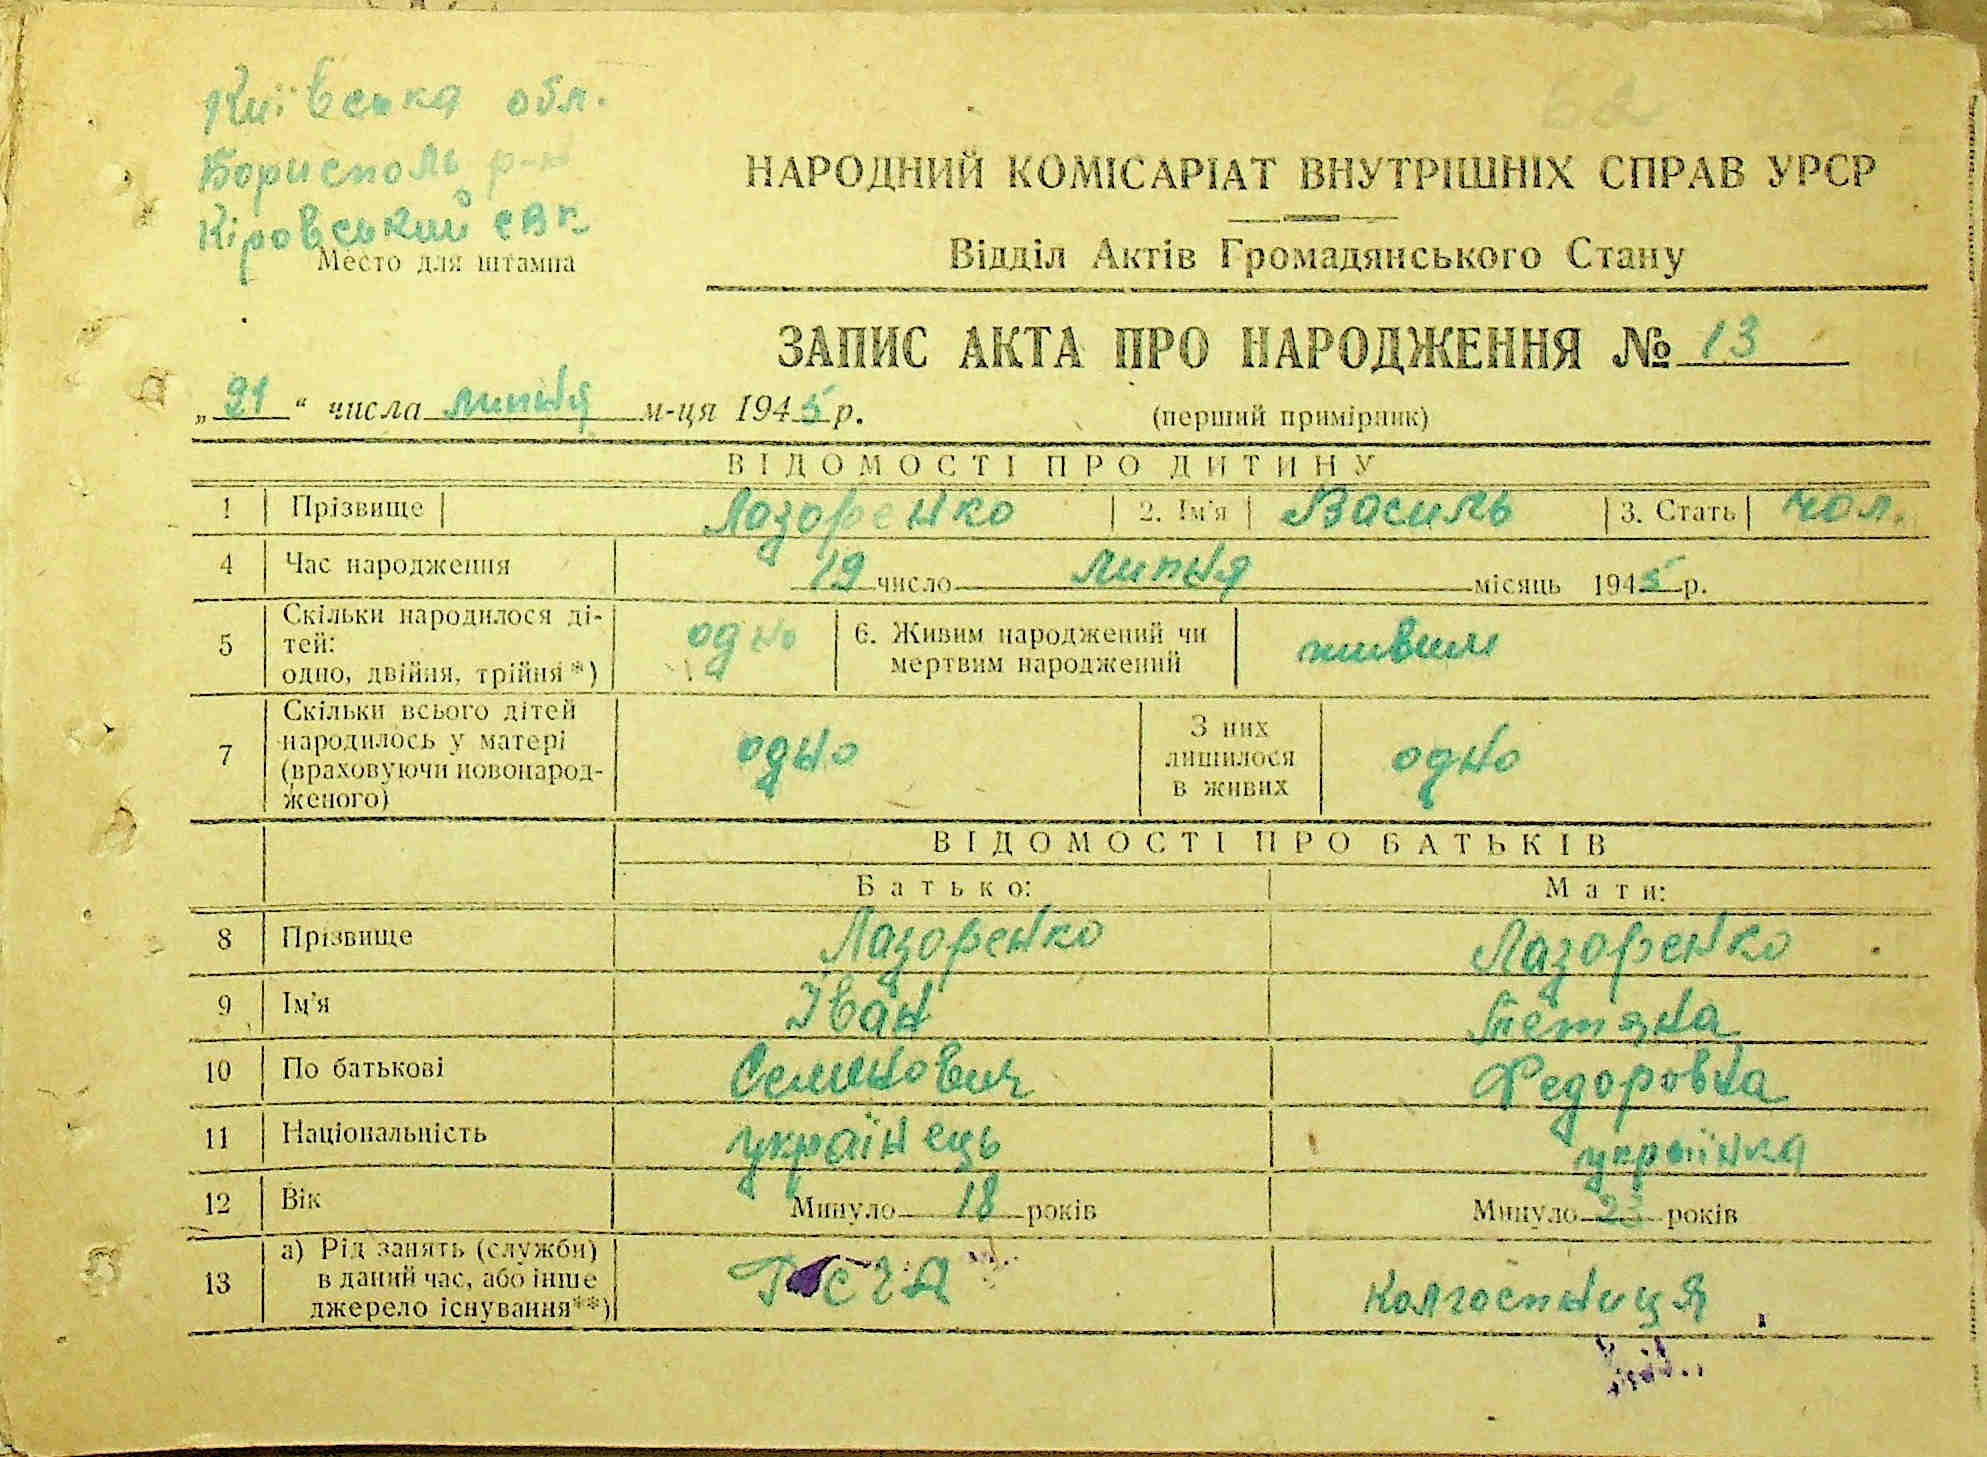 Київська обл.
Бориспол р-н
Кіровський
Место для штампа
НАРОДНИЙ КОМІСАРІАТ ВНУТРІШНІХ СПРАВ УРСР
Відділ Актів Громадянського Стану
ЗАПИС АКТА ПРО НАРОДЖЕННЯ № 13
„21“ числа липня м-ця 1945 р.
(перший примірник)
ВІДОМОСТІ ПРО ДИТИНУ
1 Прізвище Лазоренко 2. Ім'я Василь 3. Стать чол.
4 Час народження 19 число липня місяць 1945 р.
5 Скільки народилося ді-
тей:
одно, двійня, трійня*) одно 6. Живим народжений чи
мертвим народжений живим
7 Скільки всього дітей
народилось у матері
(враховуючи новонарод-
женого) одно З них
лишилося
в живих одно
ВІДОМОСТІ ПРО БАТЬКІВ
Батько: Мати:
8 Прізвище Лазоренко Лазоренко
9 Ім'я Іван Тетяна
10 По батькові Семенович Федоровна
11 Національність українець українка
12 Вік Минуло 18 років Минуло 23 років
13 а) Рід занять (служби)
в даний час, або інше
джерело існування**) колгоспниця